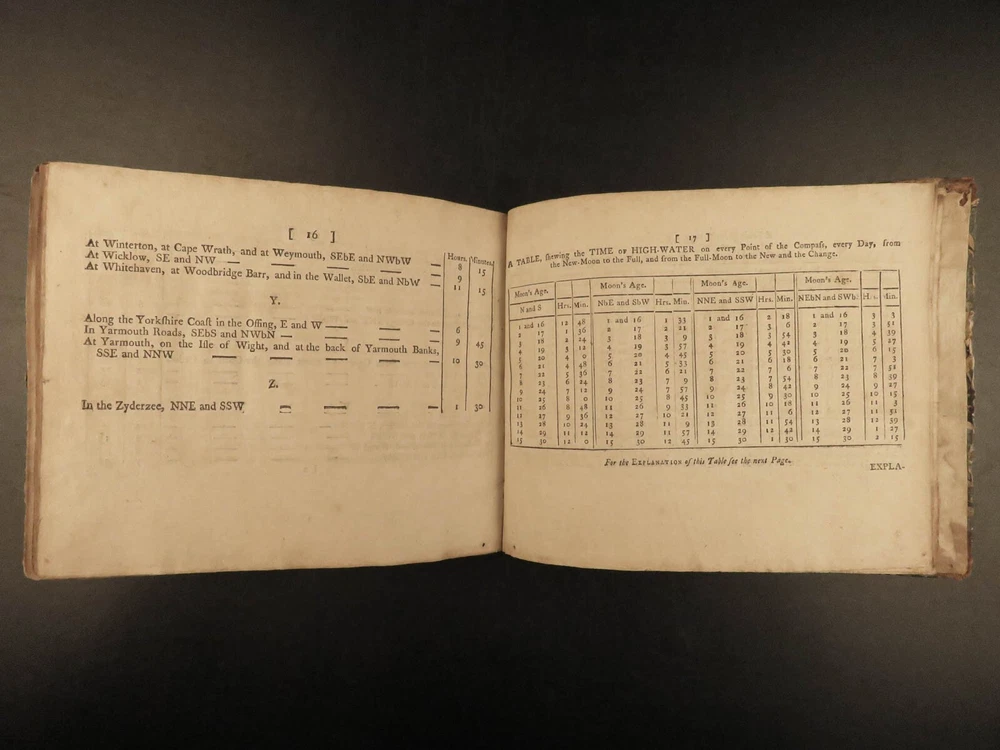 [ 16 ]
Hours. Minutes.
At Winterton, at Cape Wrath, and at Weymouth, SEbE and NWbW — 8 15
At Wicklow, SE and NW — — — — 9
At Whitehaven, at Woodbridge Barr, and in the Wallet, SbE and NbW — 11 15
Y.
Along the Yorkſhire Coaſt in the Offing, E and W — — — 6
In Yarmouth Roads, SEbS and NWbN — — — — 9 45
At Yarmouth, on the Iſle of Wight, and at the back of Yarmouth Banks,
SSE and NNW — — — — — 10 30
Z.
In the Zyderzee, NNE and SSW — — — — 1 30
[ 17 ]
A TABLE, ſhewing the TIME of HIGH-WATER on every Point of the Compaſs, every Day, from
the New-Moon to the Full, and from the Full-Moon to the New and the Change.
Moon's Age. Moon's Age. Moon's Age. Moon's Age.
N and S Hrs. Min. NbE and SbW Hrs. Min. NNE and SSW Hrs. Min. NEbN and SWbS Hrs. Min.
1 and 16 12 48 1 and 16 1 33 1 and 16 2 18 1 and 16 3 3
2 17 1 36 2 17 2 21 2 17 3 6 2 17 3 51
3 18 2 24 3 18 3 9 3 18 3 54 3 18 4 39
4 19 3 12 4 19 3 57 4 19 4 42 4 19 5 27
5 20 4 0 5 20 4 45 5 20 5 30 5 20 6 15
6 21 4 48 6 21 5 33 6 21 6 18 6 21 7 3
7 22 5 36 7 22 6 21 7 22 7 6 7 22 7 51
8 23 6 24 8 23 7 9 8 23 7 54 8 23 8 39
9 24 7 12 9 24 7 57 9 24 8 42 9 24 9 27
10 25 8 0 10 25 8 45 10 25 9 30 10 25 10 15
11 26 8 48 11 26 9 33 11 26 10 18 11 26 11 3
12 27 9 36 12 27 10 21 12 27 11 6 12 27 11 51
13 28 10 24 13 28 11 9 13 28 11 54 13 28 12 39
14 29 11 12 14 29 11 57 14 29 12 42 14 29 1 27
15 30 12 0 15 30 12 45 15 30 1 30 15 30 2 15
For the EXPLANATION of this Table ſee the next Page.
EXPLA-